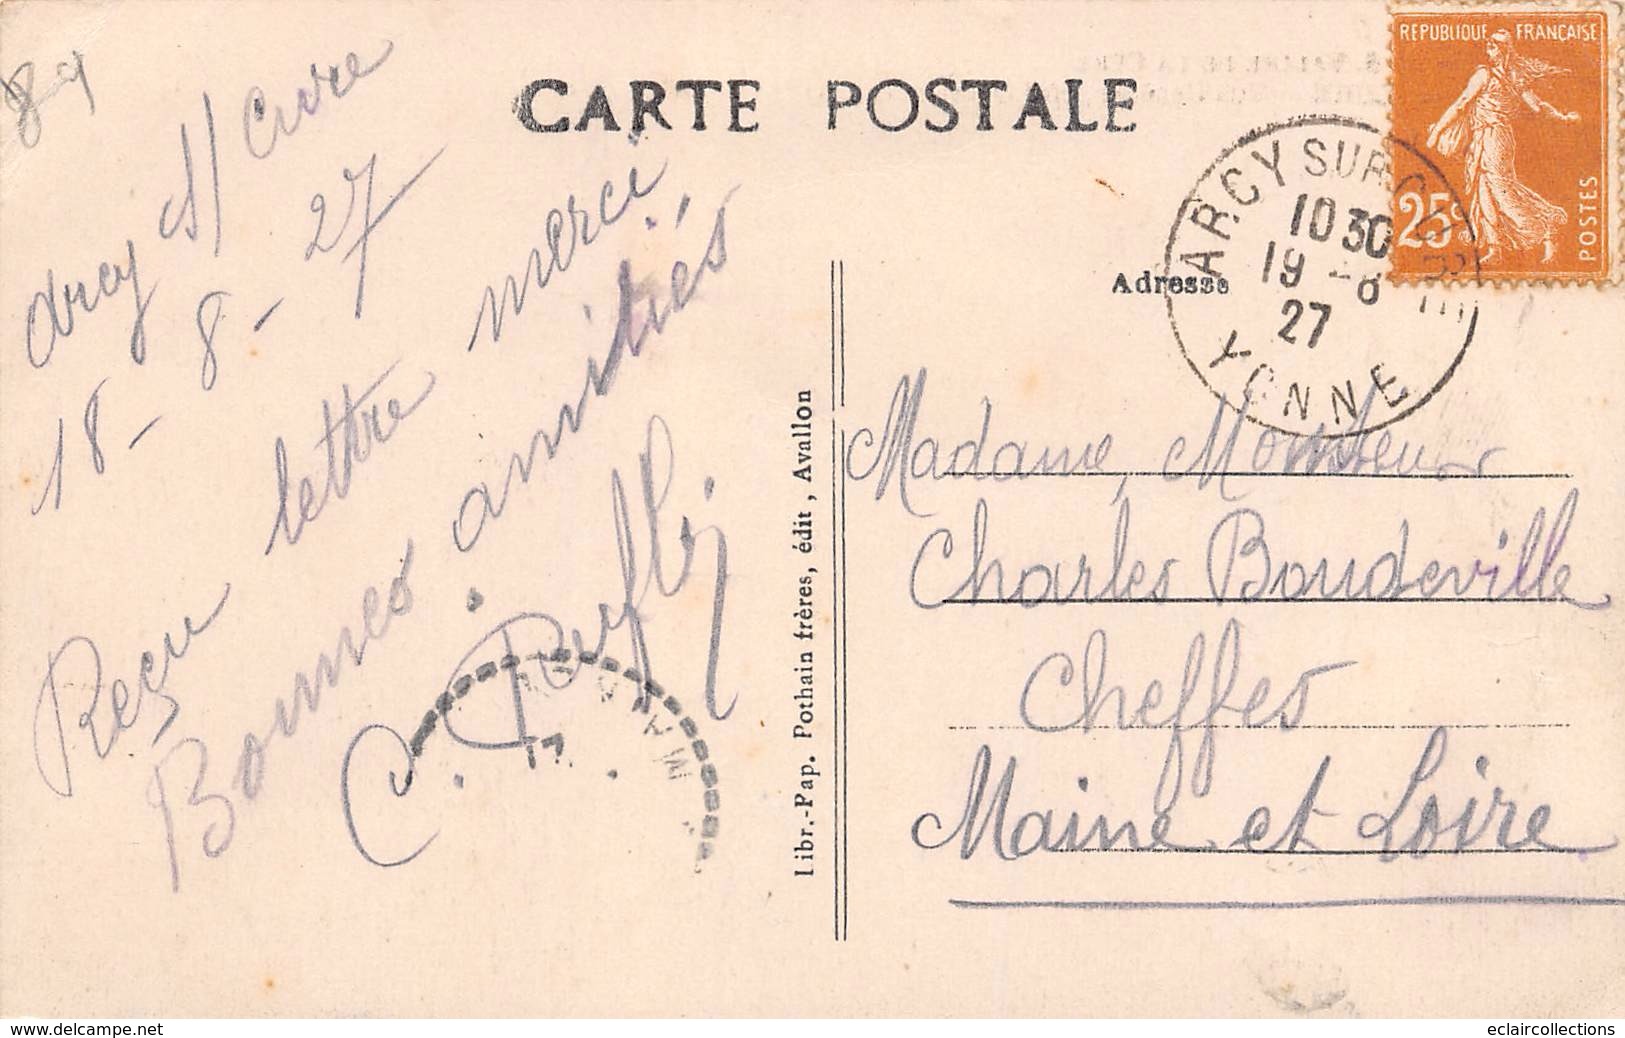 89
CARTE POSTALE
REPUBLIQUE FRANÇAISE
25c
POSTES
ARCY SUR CURE
10 30
19 -8
27
YONNE
Arcy s/ Cure
18 - 8 - 27
Reçu lettre merci
Bonnes amitiés
Libr.-Pap. Pothain frères, édit, Avallon
Adresse
Madame, Monsieur
Charles Boudeville
Cheffes
Maine et Loire
www.delcampe.net
eclaircollections